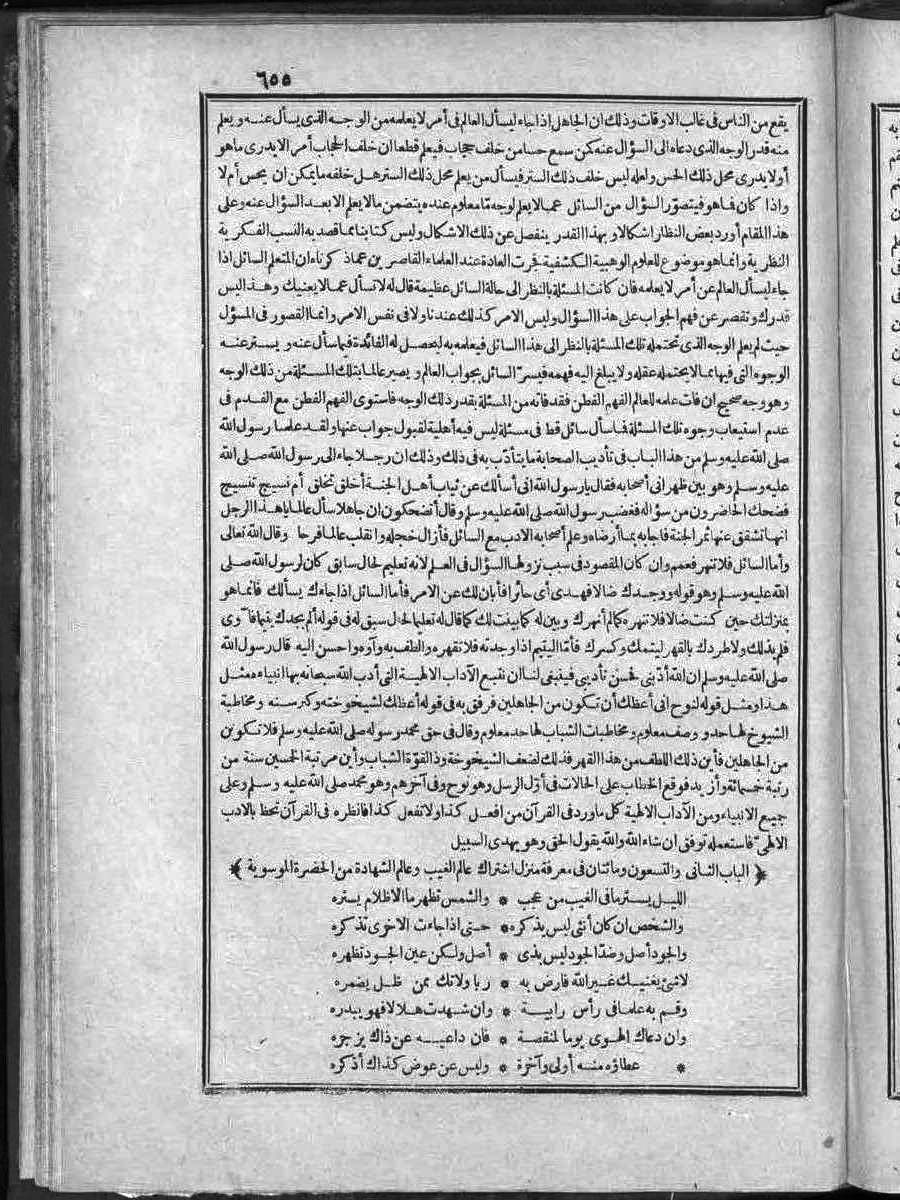 ٦٥٥
يقع من الناس فى غالب الاوقات وذلك ان الجاهل اذا جاء ليسأل العالم فى أمر لا يعلمه من الوجه الذى يسأل عنه ويعلم
منه قدر الوجه الذى دعاه الى السؤال عنه كن سمع حسا من خلف حجاب فيعلم قطعا ان خلف الحجاب أمر الا يدرى ما هو
أولا يدرى محل ذلك الحس ولعله ليس خلف ذلك الستر فيسأل من يعلم محل ذلك الستر هل خلفه ما يمكن ان يحس أم لا
واذا كان فما هو فيتصور السؤال من السائل عما لا يعلم لوجه ما معلوم عنده يتضمن مالا يعلم الا بعد السؤال عنه وعلى
هذا المقام أورد بعض النظار اشكالا وبهذا القدر ينفصل عن ذلك الاشكال وليس كتابنا مما قصد به النسب الفكرية
النظرية وانما هو موضوع للعلوم الوهبية الكشفية فجرت العادة عند العلماء القاصرين عما ذكرناه ان المتعلم السائل اذا
جاء ليسأل العالم عن أمر لا يعلمه فان كانت المسئلة بالنظر الى حالة السائل عظيمة قال له لا تسأل عما لا يعنيك وهذا ليس
قدرك وتقصر عن فهم الجواب على هذا السؤال وليس الامر كذلك عندنا ولا فى نفس الامر وانما القصور فى المسؤل
حيث لم يعلم الوجه الذى تحتمله تلك المسئلة بالنظر الى هذا السائل فيعلمه به ليحصل له الفائدة فيما سأل عنه ويستر عنه
الوجوه التى فيها مما لا يحتمله عقله ولا يبلغ اليه فهمه فيسر السائل بجواب العالم ويصير عالما بتلك المسئلة من ذلك الوجه
وهو وجه صحيح ان فات علمه للعالم الفهم الفطن فقد فاته من المسئلة بقدر ذلك الوجه فاستوى الفهم الفطن مع الفدم فى
عدم استيعاب وجوه تلك المسئلة فما سأل سائل قط فى مسئلة ليس فيه أهلية لقبول جواب عنها ولقد علمنا رسول الله
صلى الله عليه وسلم من هذا الباب فى تأديب الصحابة ما يتأدب به فى ذلك وذلك ان رجلا جاء الى رسول الله صلى الله
عليه وسلم وهو بين ظهرانى أصحابه فقال يارسول الله انى أسألك عن ثياب أهل الجنة أخلق تخلق أم نسيج تنسيج
فضحك الحاضرون من سؤاله فغضب رسول الله صلى الله عليه وسلم وقال أتضحكون ان جاهلا سأل عالما ياهذا الرجل
انها تشقق عنها ثمر الجنة فاجابه بما أرضاه وعلم أصحابه الادب مع السائل فأزال خجله وانقلب عالما فرحا وقال الله تعالى
وأما السائل فلا تنهر فعمم وان كان المقصود فى سبب نزولها السؤال فى العلم لانه تعليم لحال سابق كان لرسول الله صلى
الله عليه وسلم وهو قوله ووجدك ضالا فهدى أى حائرا فأبان لك عن الامر فأما السائل اذا جاءك يسألك فانما هو
بمنزلتك حين كنت ضالا فلا تنهره كما لم أنهرك وبين له كما بينت لك كما قال له تعليما لحال سبق له فى قوله ألم يجدك يتيما فآوى
فلم يذلك ولا طردك بالقهر ليتمك وكسرك فأما اليتيم اذا وجدته فلا تقهره والطف به وآوه واحسن اليه قال رسول الله
صلى الله عليه وسلم ان الله أدبنى فحسن تأديبى فينبغى لنا ان نتبع الآداب الالهية التى أدب الله سبحانه بها انبياءه مثل
هذا ومثل قوله لنوح انى أعظك أن تكون من الجاهلين فرفق به فى قوله أعظك لشيخوخته وكبر سنه ومخاطبة
الشيوخ لها حد ووصف معلوم ومخاطبات الشباب لها حد معلوم وقال فى حق محمد رسوله صلى الله عليه وسلم فلا تكونن
من الجاهلين فأين ذلك اللطف من هذا القهر فذلك لضعف الشيخوخة وذا لقوة الشباب وأين مرتبة الخمسين سنة من
رتبة خمسمائة وأزيد فوقع الخطاب على الحالات فى أول الرسل وهو نوح وفى آخرهم وهو محمد صلى الله عليه وسلم وعلى
جميع الانبياء ومن الآداب الالهية كل ما ورد فى القرآن من افعل كذا ولا تفعل كذا فانظره فى القرآن تحظ بالادب
الالهى فاستعمله توفق ان شاء الله والله يقول الحق وهو يهدى السبيل
﴿ الباب الثانى والتسعون ومائتان فى معرفة منزل اشتراك عالم الغيب وعالم الشهادة من الحضرة الموسوية ﴾
الليل يستر ما فى الغيب من عجب * والشمس تظهر ما الاظلام يستره
والشخص ان كان أنثى ليس يذكره * حتى اذا جاءت الاخرى تذكره
والجود أصل وضد الجود ليس بذى * أصل ولكن عين الجود تظهره
لا شئ يغنيك غير الله فارض به * ربا ولا تك ممن ظل يضمره
وقم به علما فى رأس رابية * وان شهدت هلالا فهو يبدره
وان دعاك الهوى يوما لمنقصة * فان داعيه عن ذاك يزجره
* عطاؤه منه أولى وآخرة * وليس عن عوض كذاك أذكره